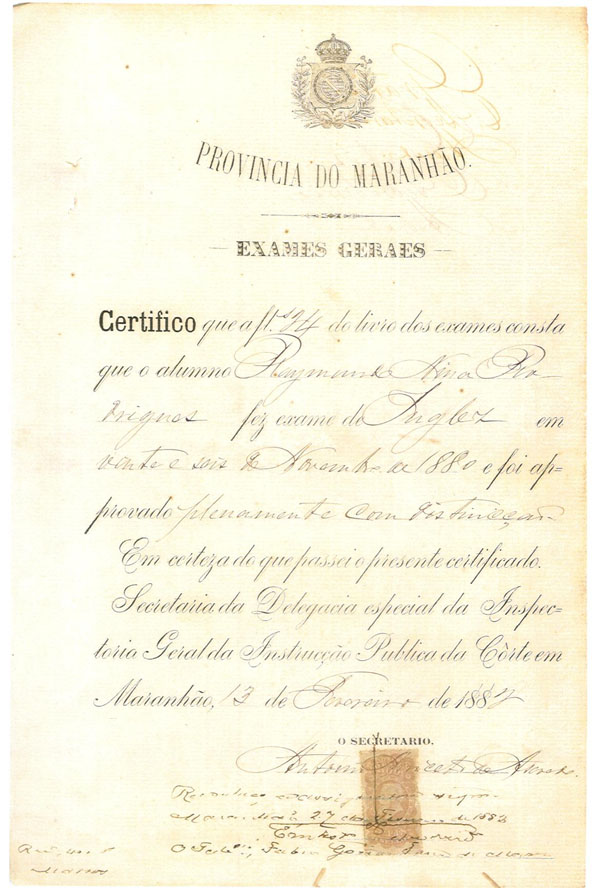 PROVINCIA DO MARANHÃO.
EXAMES GERAES
Certifico que a fl. 94 do livro dos exames consta
que o alumno Raymundo Nina Ro-
drigues fez exame de Inglez em
vinte e seis de Novembro de 1880 e foi ap-
provado plenamente com distincção
Em certeza do que passei o presente certificado.
Secretaria da Delegacia especial da Inspec-
toria Geral da Instrucção Publica da Côrte em
Maranhão, 13 de Fevereiro de 1882
O SECRETARIO.
Antonio
Maranhão 27 de Fevereiro de 1882